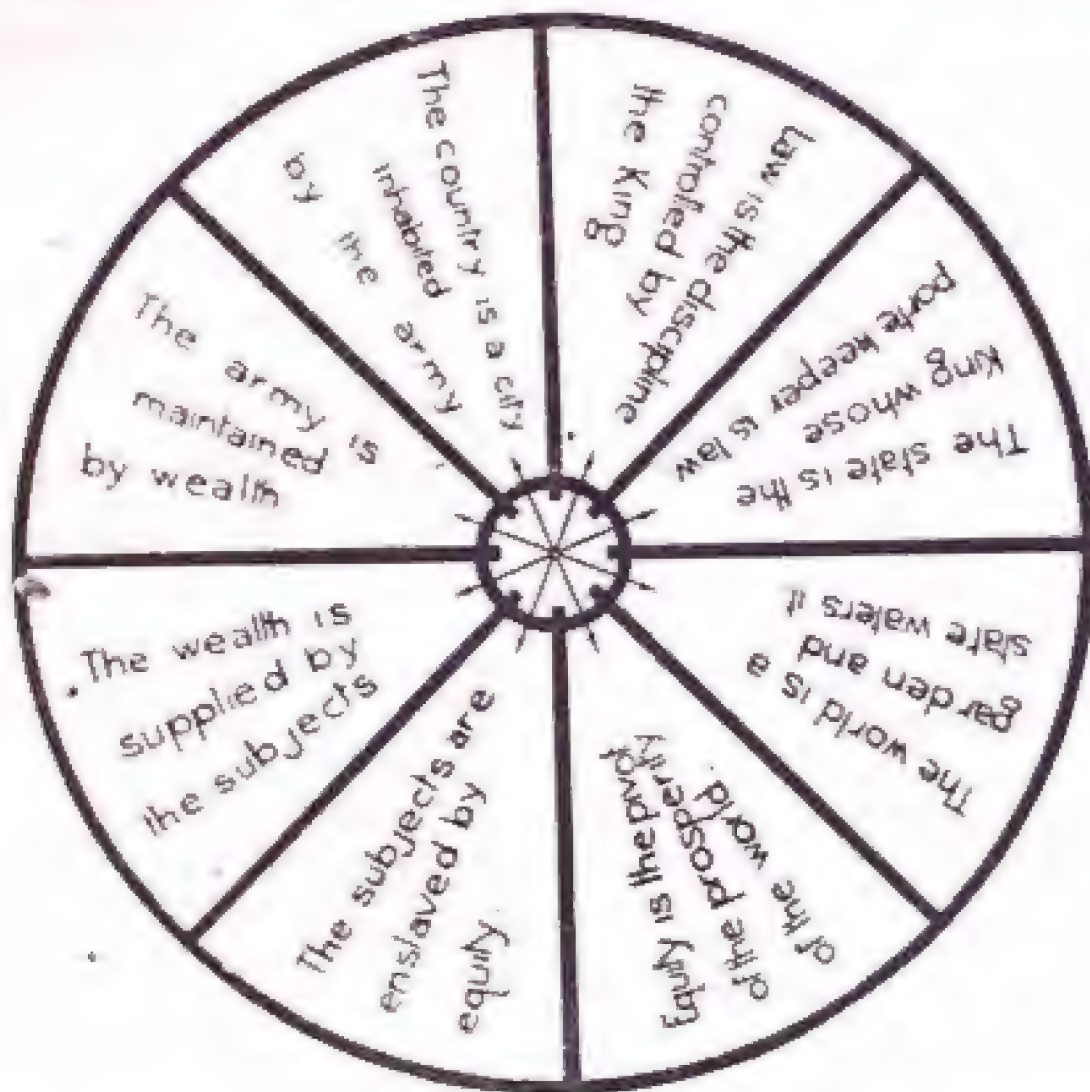 The world is a
garden and
state waters it
The state is the
King whose
porte keeper is law
Law is the discipline
controlled by
the King
The country is a city
inhabited
by the army
The army is
maintained
by wealth
The wealth is
supplied by
the subjects
The subjects are
enslaved by
equity
Equity is the pivot
of the prosperity
of the world.